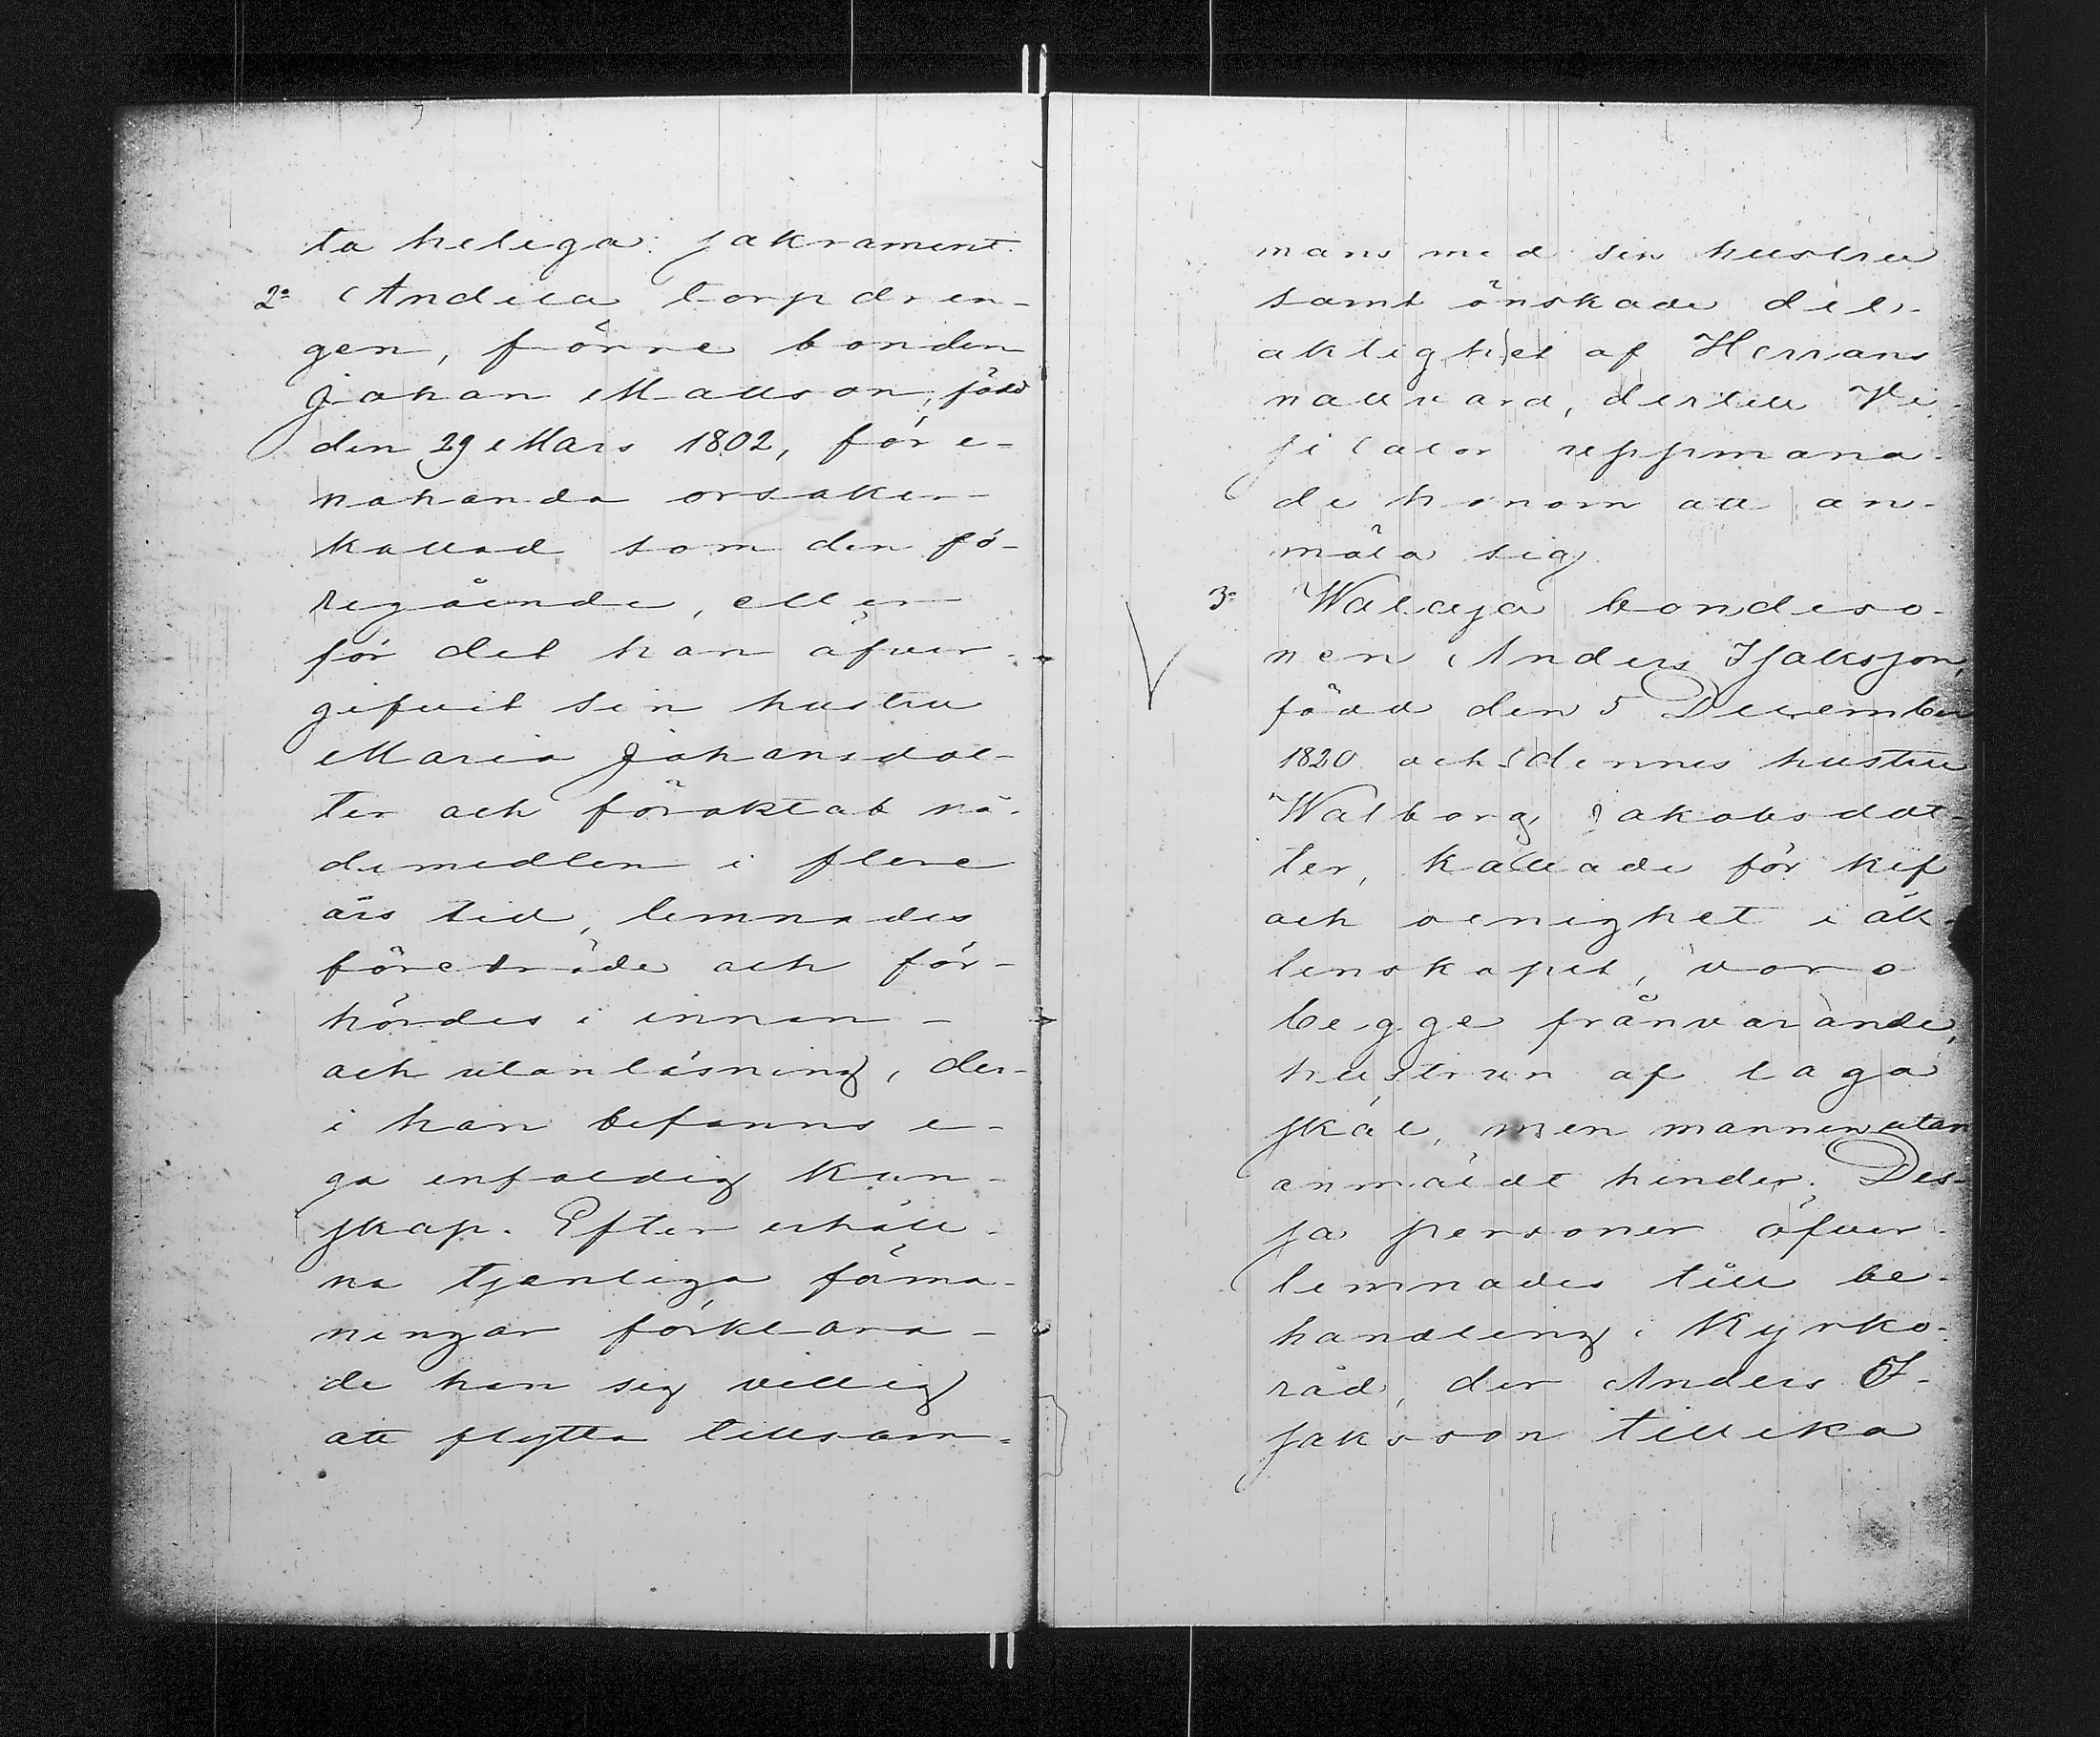 ta heliga sakrament.
2o Andila torpdren-
gen, förre bonden
Johan Mattson, född
den 29 Mars 1802, för e-
nahanda orsaker
kallad som den fö-
regående, eller
för det han öfver-
gifvit sin hustru
Maria Johansdot-
ter och föraktat nå-
demedlen i flere
års tid, lemnades
företräde och för-
hördes i innan-
och utanläsning, der-
i han befanns e-
ga enfaldig kun-
skap. Efter erhåll-
na tjenliga förma-
ningar förklara-
de han sig villig
att flytta tillsam-
mans med sin hustru
samt önskade del-
aktighet af Herrans
nattvard, dertill Vi-
sitator uppmana-
de honom att an-
mäla sig.
3o Walaja bondeso-
nen Anders Isaksson,
född den 5 December
1820 och dennes hustru
Walborg Jakobsdot-
ter, kallade för kif
och oenighet i äk-
tenskapet, voro
begge frånvarande,
hustrun af laga
skäl, men mannen utan
anmäldt hinder. Des-
sa personer öfver-
lemnades till be-
handling i Kyrko-
råd, der Anders I-
saksson tillika